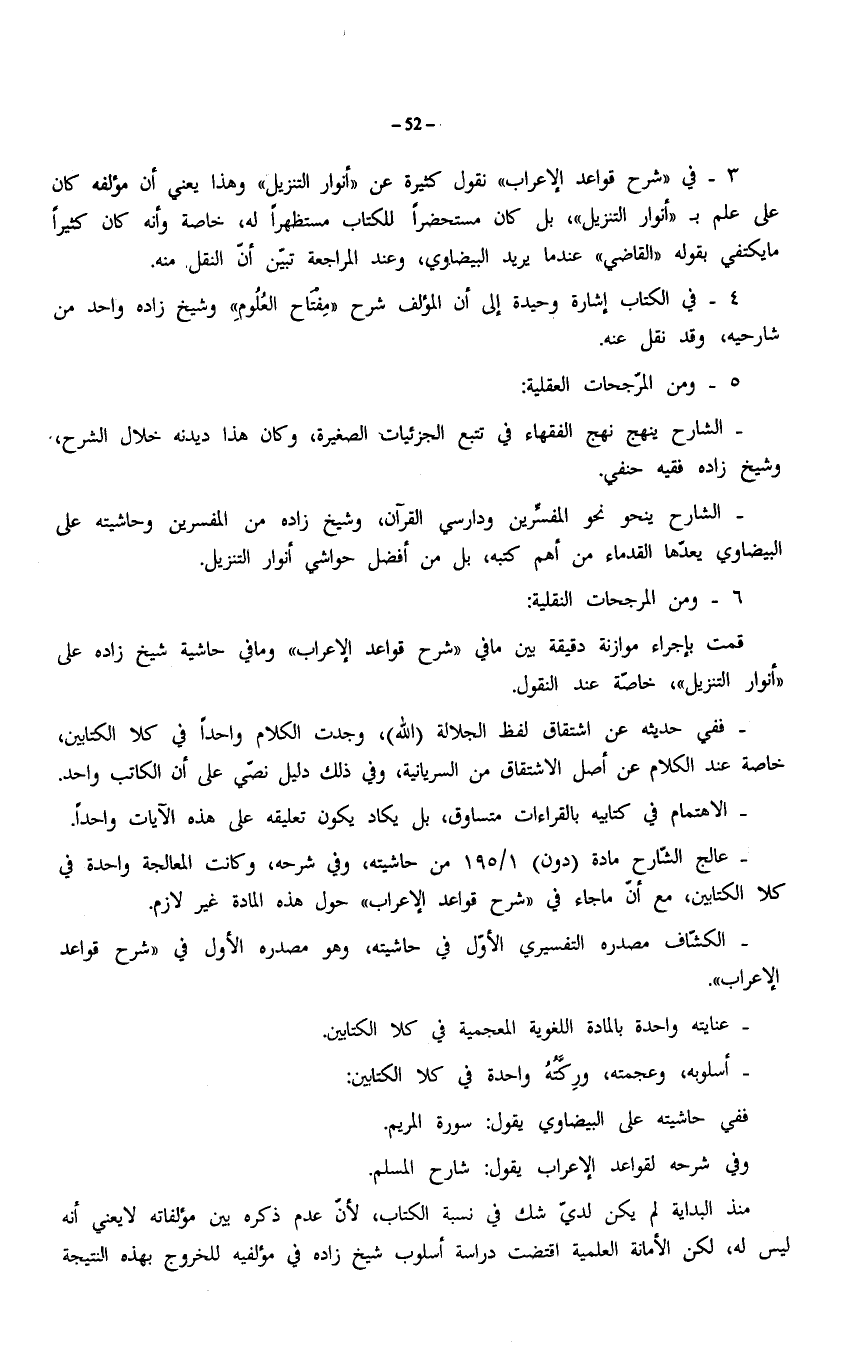 - 52 -
٣ - في «شرح قواعد الإعراب» نقول كثيرة عن «أنوار التنزيل» وهذا يعني أن مؤلفه كان
على علم بـ «أنوار التنزيل»، بل كان مستحضراً للكتاب مستظهراً له، خاصة وأنه كان كثيراً
مايكتفي بقوله «القاضي» عندما يريد البيضاوي، وعند المراجعة تبيّن أنّ النقل منه.
٤ - في الكتاب إشارة وحيدة إلى أن المؤلف شرح «مِفْتَاح العُلُومِ» وشيخ زاده واحد من
شارحيه، وقد نقل عنه.
٥ - ومن المرّجحات العقلية:
- الشارح ينهج نهج الفقهاء في تتبع الجزئيات الصغيرة، وكان هذا ديدنه خلال الشرح،
وشيخ زاده فقيه حنفي.
- الشارح ينحو نحو المفسِّرين ودارسي القرآن، وشيخ زاده من المفسرين وحاشيته على
البيضاوي يعدّها القدماء من أهم كتبه، بل من أفضل حواشي أنوار التنزيل.
٦ - ومن المرجحات النقلية:
قمت بإجراء موازنة دقيقة بين مافي «شرح قواعد الإعراب» ومافي حاشية شيخ زاده على
«أنوار التنزيل»، خاصّة عند النقول.
- ففي حديثه عن اشتقاق لفظ الجلالة (الله)، وجدت الكلام واحداً في كلا الكتابين،
خاصة عند الكلام عن أصل الاشتقاق من السريانية، وفي ذلك دليل نصّي على أن الكاتب واحد.
- الاهتمام في كتابيه بالقراءات متساوق، بل يكاد يكون تعليقه على هذه الآيات واحداً.
- عالج الشّارح مادة (دون) ١٩٥/١ من حاشيته، وفي شرحه، وكانت المعالجة واحدة في
كلا الكتابين، مع أنّ ماجاء في «شرح قواعد الإعراب» حول هذه المادة غير لازم.
- الكشّاف مصدره التفسيري الأوّل في حاشيته، وهو مصدره الأول في «شرح قواعد
الإعراب».
- عنايته واحدة بالمادة اللغوية المعجمية في كلا الكتابين.
- أسلوبه، وعجمته، ورِكَّتُهُ واحدة في كلا الكتابين:
ففي حاشيته على البيضاوي يقول: سورة المريم.
وفي شرحه لقواعد الإعراب يقول: شارح المسلم.
منذ البداية لم يكن لديّ شك في نسبة الكتاب، لأنّ عدم ذكره بين مؤلفاته لايعني أنه
ليس له، لكن الأمانة العلمية اقتضت دراسة أسلوب شيخ زاده في مؤلفيه للخروج بهذه النتيجة